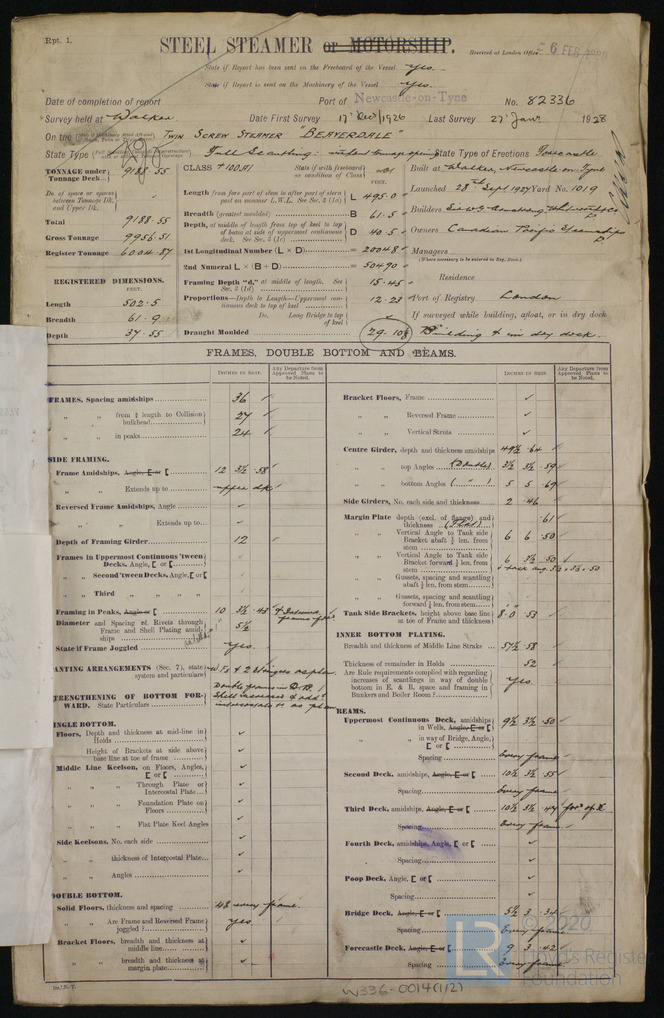 Rpt. 1.
STEEL STEAMER or MOTORSHIP.
Received at London Office 6 FEB 1928
State if Report has been sent on the Freeboard of the Vessel Yes.
State if Report is sent on the Machinery of the Vessel Yes.
Date of completion of report
Port of Newcastle-on-Tyne
No. 82336
Survey held at Walker
Date First Survey 17 Dec/1926
Last Survey 27 Jan 1928
On the
TWIN SCREW STEAMER "BEAVERDALE"
State Type
Full Scantling:
State Type of Erections Forecastle
TONNAGE under Tonnage Deck 9188.55
Do. of space or spaces between Tonnage Dk. and Upper Dk.
Total 9188.55
Gross Tonnage 9956.51
Register Tonnage 6004.87
REGISTERED DIMENSIONS.
FEET.
Length 502.5
Breadth 61.9
Depth 37.55
CLASS +100A1
State if with freeboard as condition of Class
FEET.
Length from fore part of stem to after part of stern post on summer L.W.L. See Sec. 2 (1a) L 495.0
Breadth (greatest moulded) B 61.5
Depth, at middle of length from top of keel to top of beam at side of uppermost continuous deck. See Sec. 2 (1c) D 40.5
1st Longitudinal Number (L × D) = 20048
2nd Numeral L × (B + D) = 50490
Framing Depth "d," at middle of length. See Sec. 2 (1d) 15.45
Proportions—Depth to Length—Uppermost continuous deck to top of keel 12.23
Do. Long Bridge to top of keel
Draught Moulded 29-10¾
Built at Walker, Newcastle-on-Tyne
Launched 28th Sept 1927 Yard No. 1019
Builders Sir W.G. Armstrong Whitworth & Co
Owners Canadian Pacific Steamships
Managers
(Where necessary to be entered in Reg. Book.)
Residence
Port of Registry London
If surveyed while building, afloat, or in dry dock
Building & in dry dock.
FRAMES, DOUBLE BOTTOM AND BEAMS.
INCHES IN SHIP.
Any Departure from Approved Plans to be Noted.
FRAMES, Spacing amidships 36
" " from ⅗ length to Collision bulkhead 27
" " in peaks 24
SIDE FRAMING.
Frame Amidships, Angle, E or [ 12 3½ .58
" " Extends up to upper dk
Reversed Frame Amidships, Angle
" " Extends up to
Depth of Framing Girder 12
Frames in Uppermost Continuous 'tween Decks, Angle, E or [
" " Second 'tween Decks, Angle, E or [
" " Third " " "
Framing in Peaks, Angle or [ 10 3½ .43
Diameter and Spacing of Rivets through Frame and Shell Plating amidships
State if Frame Joggled Yes.
PANTING ARRANGEMENTS (Sec. 7), state system and particulars
STRENGTHENING OF BOTTOM FORWARD. State Particulars
SINGLE BOTTOM.
Floors, Depth and thickness at mid-line in Holds
Height of Brackets at side above base line at toe of frame
Middle Line Keelson, on Floors, Angles, E or [
" " Through Plate or Intercostal Plate
" " Foundation Plate on Floors
" " Flat Plate Keel Angles
Side Keelsons, No. each side
" " thickness of Intercostal Plate
" " Angles
DOUBLE BOTTOM.
Solid Floors, thickness and spacing .48 every frame.
" " Are Frame and Reversed Frame joggled? Yes
Bracket Floors, breadth and thickness at middle line
" " breadth and thickness at margin plate
INCHES IN SHIP.
Any Departure from Approved Plans to be Noted.
Bracket Floors, Frame
" " Reversed Frame
" " Vertical Struts
Centre Girder, depth and thickness amidships 49½ .64
" " top Angles (Double) 3½ 3½ .59
" " bottom Angles ( " ) 5 5 .69
Side Girders, No. each side and thickness 2 .46
Margin Plate depth (excl. of flange) and thickness .61
" " Vertical Angle to Tank side Bracket abaft ¼ len. from stem 6 6 .50
" " Vertical Angle to Tank side Bracket forward ¼ len. from stem 6 3½ .50
" " Gussets, spacing and scantling abaft ¼ len. from stem
" " Gussets, spacing and scantling forward ¼ len. from stem
Tank Side Brackets, height above base line at toe of Frame and thickness 8-0 .53
INNER BOTTOM PLATING.
Breadth and thickness of Middle Line Strake 57½ .58
Thickness of remainder in Holds .52
Are Rule requirements complied with regarding increases of scantlings in way of double bottom in E. & B. space and framing in Bunkers and Boiler Room? Yes.
BEAMS.
Uppermost Continuous Deck, amidships in Wells, Angle, E or [ 9½ 3½ .50
" " in way of Bridge, Angle, E or [
Spacing every frame
Second Deck, amidships, Angle, E or [ 10½ 3½ .55
Spacing every frame
Third Deck, amidships, Angle, E or [ 10½ 3½ .47
Spacing every frame
Fourth Deck, amidships, Angle, E or [
Spacing
Poop Deck, Angle, E or [
Spacing
Bridge Deck, Angle, E or [ 5½ 3 .34
Spacing every frame
Forecastle Deck, Angle, E or [ 9 3 .42
Spacing every frame
© 2020
LR
Lloyd's Register
Foundation
W336-0014(1/2)